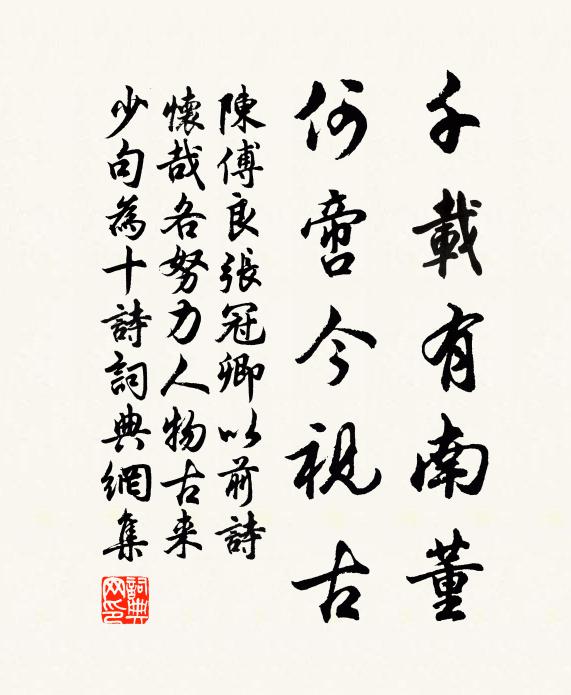 千載有南董
何啻今視古
陳傅良張冠卿以前詩
懷哉各努力人物古来
少句為十詩詞典網集
詞典網印